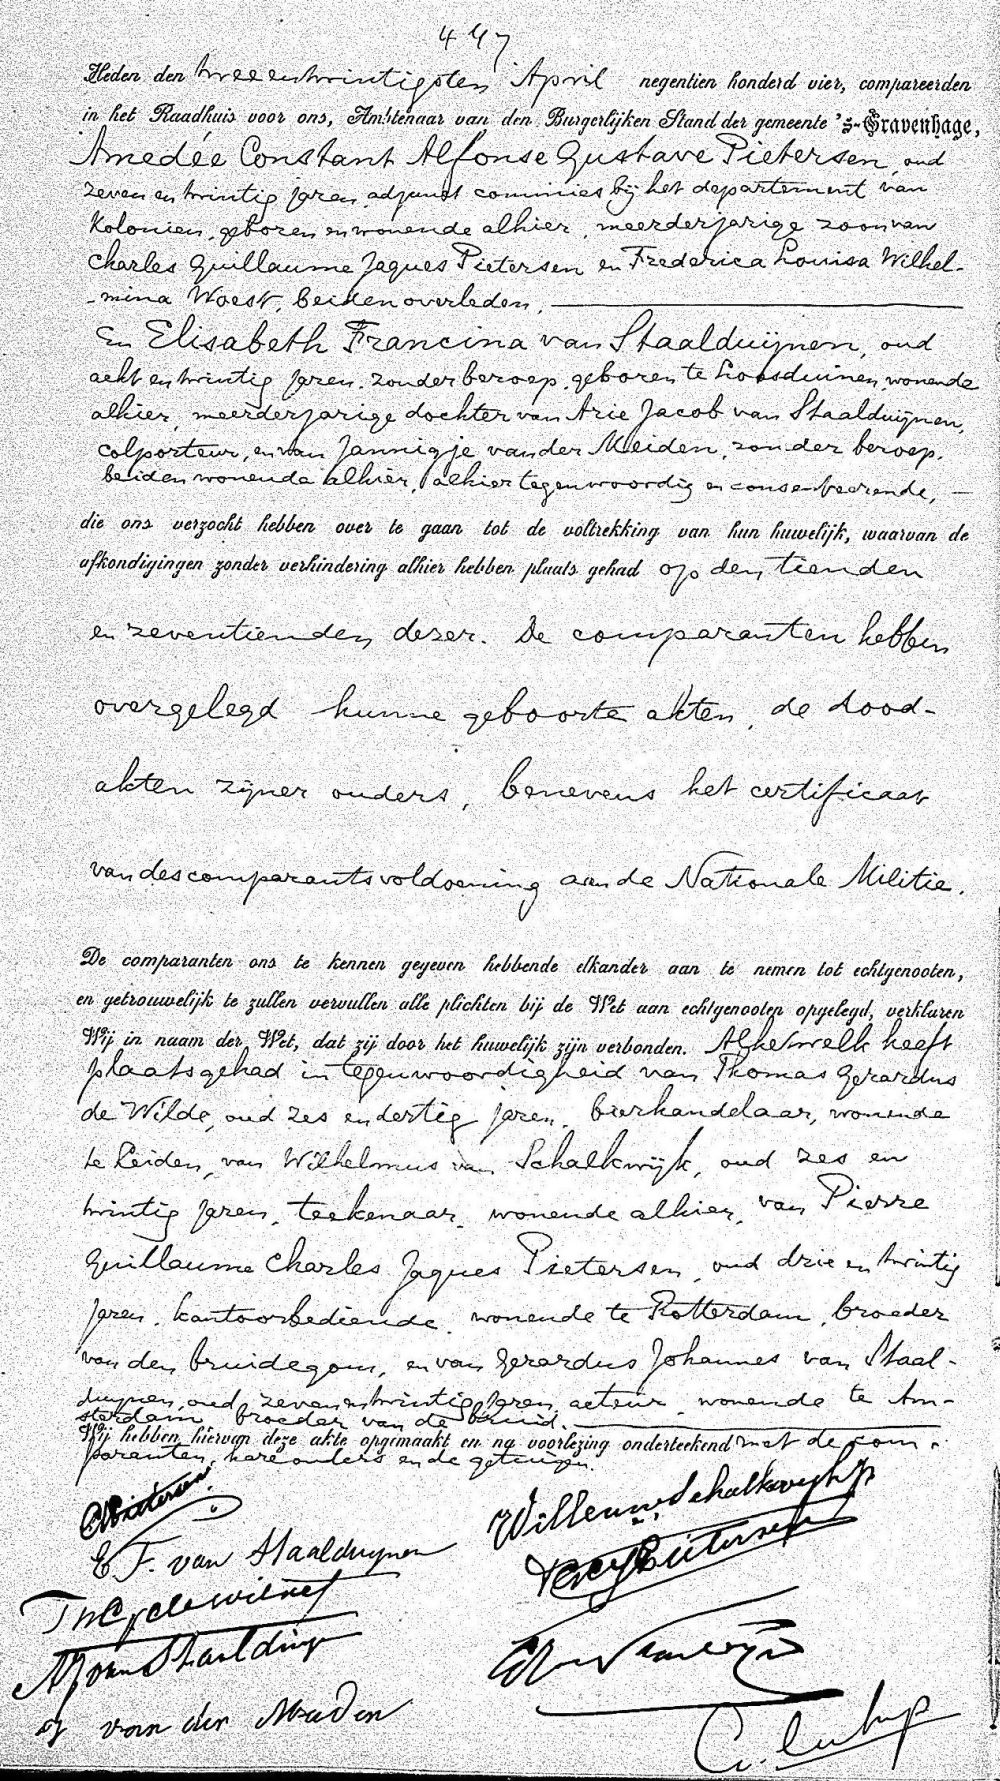 447
Heden den tweeentwintigsten April negentien honderd vier, compareerden
in het Raadhuis voor ons, Ambtenaar van den Burgerlijken Stand der gemeente 's-Gravenhage,
Amedée Constant Alfonse Gustave Pietersen, oud
zeven en twintig jaren, adjunct commies bij het departement van
Kolonien, geboren en wonende alhier, meerderjarige zoon van
Charles Guillaume Jaques Pietersen en Frederica Louisa Wilhel-
-mina Woest, beiden overleden,
En Elisabeth Francina van Staalduijnen, oud
acht en twintig jaren, zonder beroep, geboren te Loosduinen, wonende
alhier, meerderjarige dochter van Arie Jacob van Staalduijnen,
colporteur, en van Jannigje van der Meiden, zonder beroep,
beiden wonende alhier, alhier tegenwoordig en consenteerende, —
die ons verzocht hebben over te gaan tot de voltrekking van hun huwelijk, waarvan de
afkondigingen zonder verhindering alhier hebben plaats gehad op den tienden
en zeventienden dezer. De comparanten hebben
overgelegd hunne geboorte akten, de dood-
akten zijner ouders, benevens het certificaat
van des comparants voldoening aan de Nationale Militie.
De comparanten ons te kennen gegeven hebbende elkander aan te nemen tot echtgenooten,
en getrouwelijk te zullen vervullen alle plichten bij de Wet aan echtgenooten opgelegd, verklaren
Wij in naam der Wet, dat zij door het huwelijk zijn verbonden. Al hetwelk heeft
plaats gehad in tegenwoordigheid van Thomas Gerardus
de Wilde, oud zes en dertig jaren, bierhandelaar, wonende
te Leiden, van Wilhelmus van Schalkwijk, oud zes en
twintig jaren, teekenaar, wonende alhier, van Pierre
Guillaume Charles Jaques Pietersen, oud drie en twintig
jaren, kantoorbediende, wonende te Rotterdam, broeder
van den bruidegom, en van Gerardus Johannes van Staal-
duijnen, oud zeven en twintig jaren, acteur, wonende te Am-
sterdam, broeder van de bruid.
Wij hebben hiervan deze akte opgemaakt en na voorlezing onderteekend met de com-
paranten, hare ouders en de getuigen.
Pietersen
E F. van Staalduynen
Th G de Wilde
Willem v. Schalkwijk
Pietersen
AJ van Staalduijn
J van der Meiden